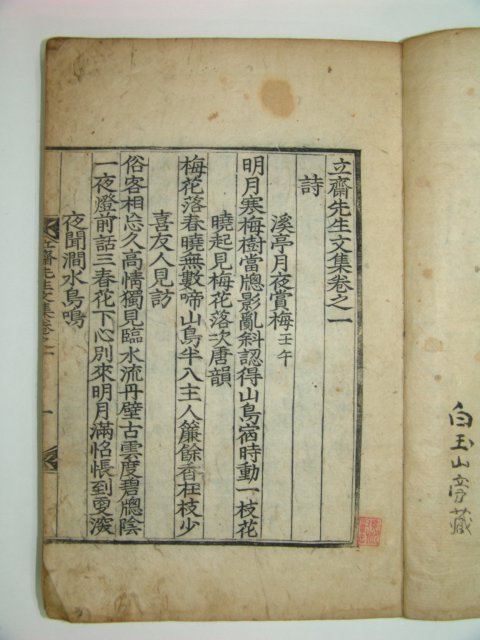 立齋先生文集卷之一
詩
溪亭月夜賞梅 壬午
明月寒梅樹當牕影亂斜認得山鳥宿時動一枝花
曉起見梅花落次唐韻
梅花落春曉無數啼山鳥半入主人簾餘香在枝少
喜友人見訪
俗客相忘久高情獨見臨水流丹壁古雲度碧牕陰
一夜燈前話三春花下心別來明月滿怊悵到更深
夜聞澗水鳥鳴
立齋先生文集卷之一
一
白玉山旁藏